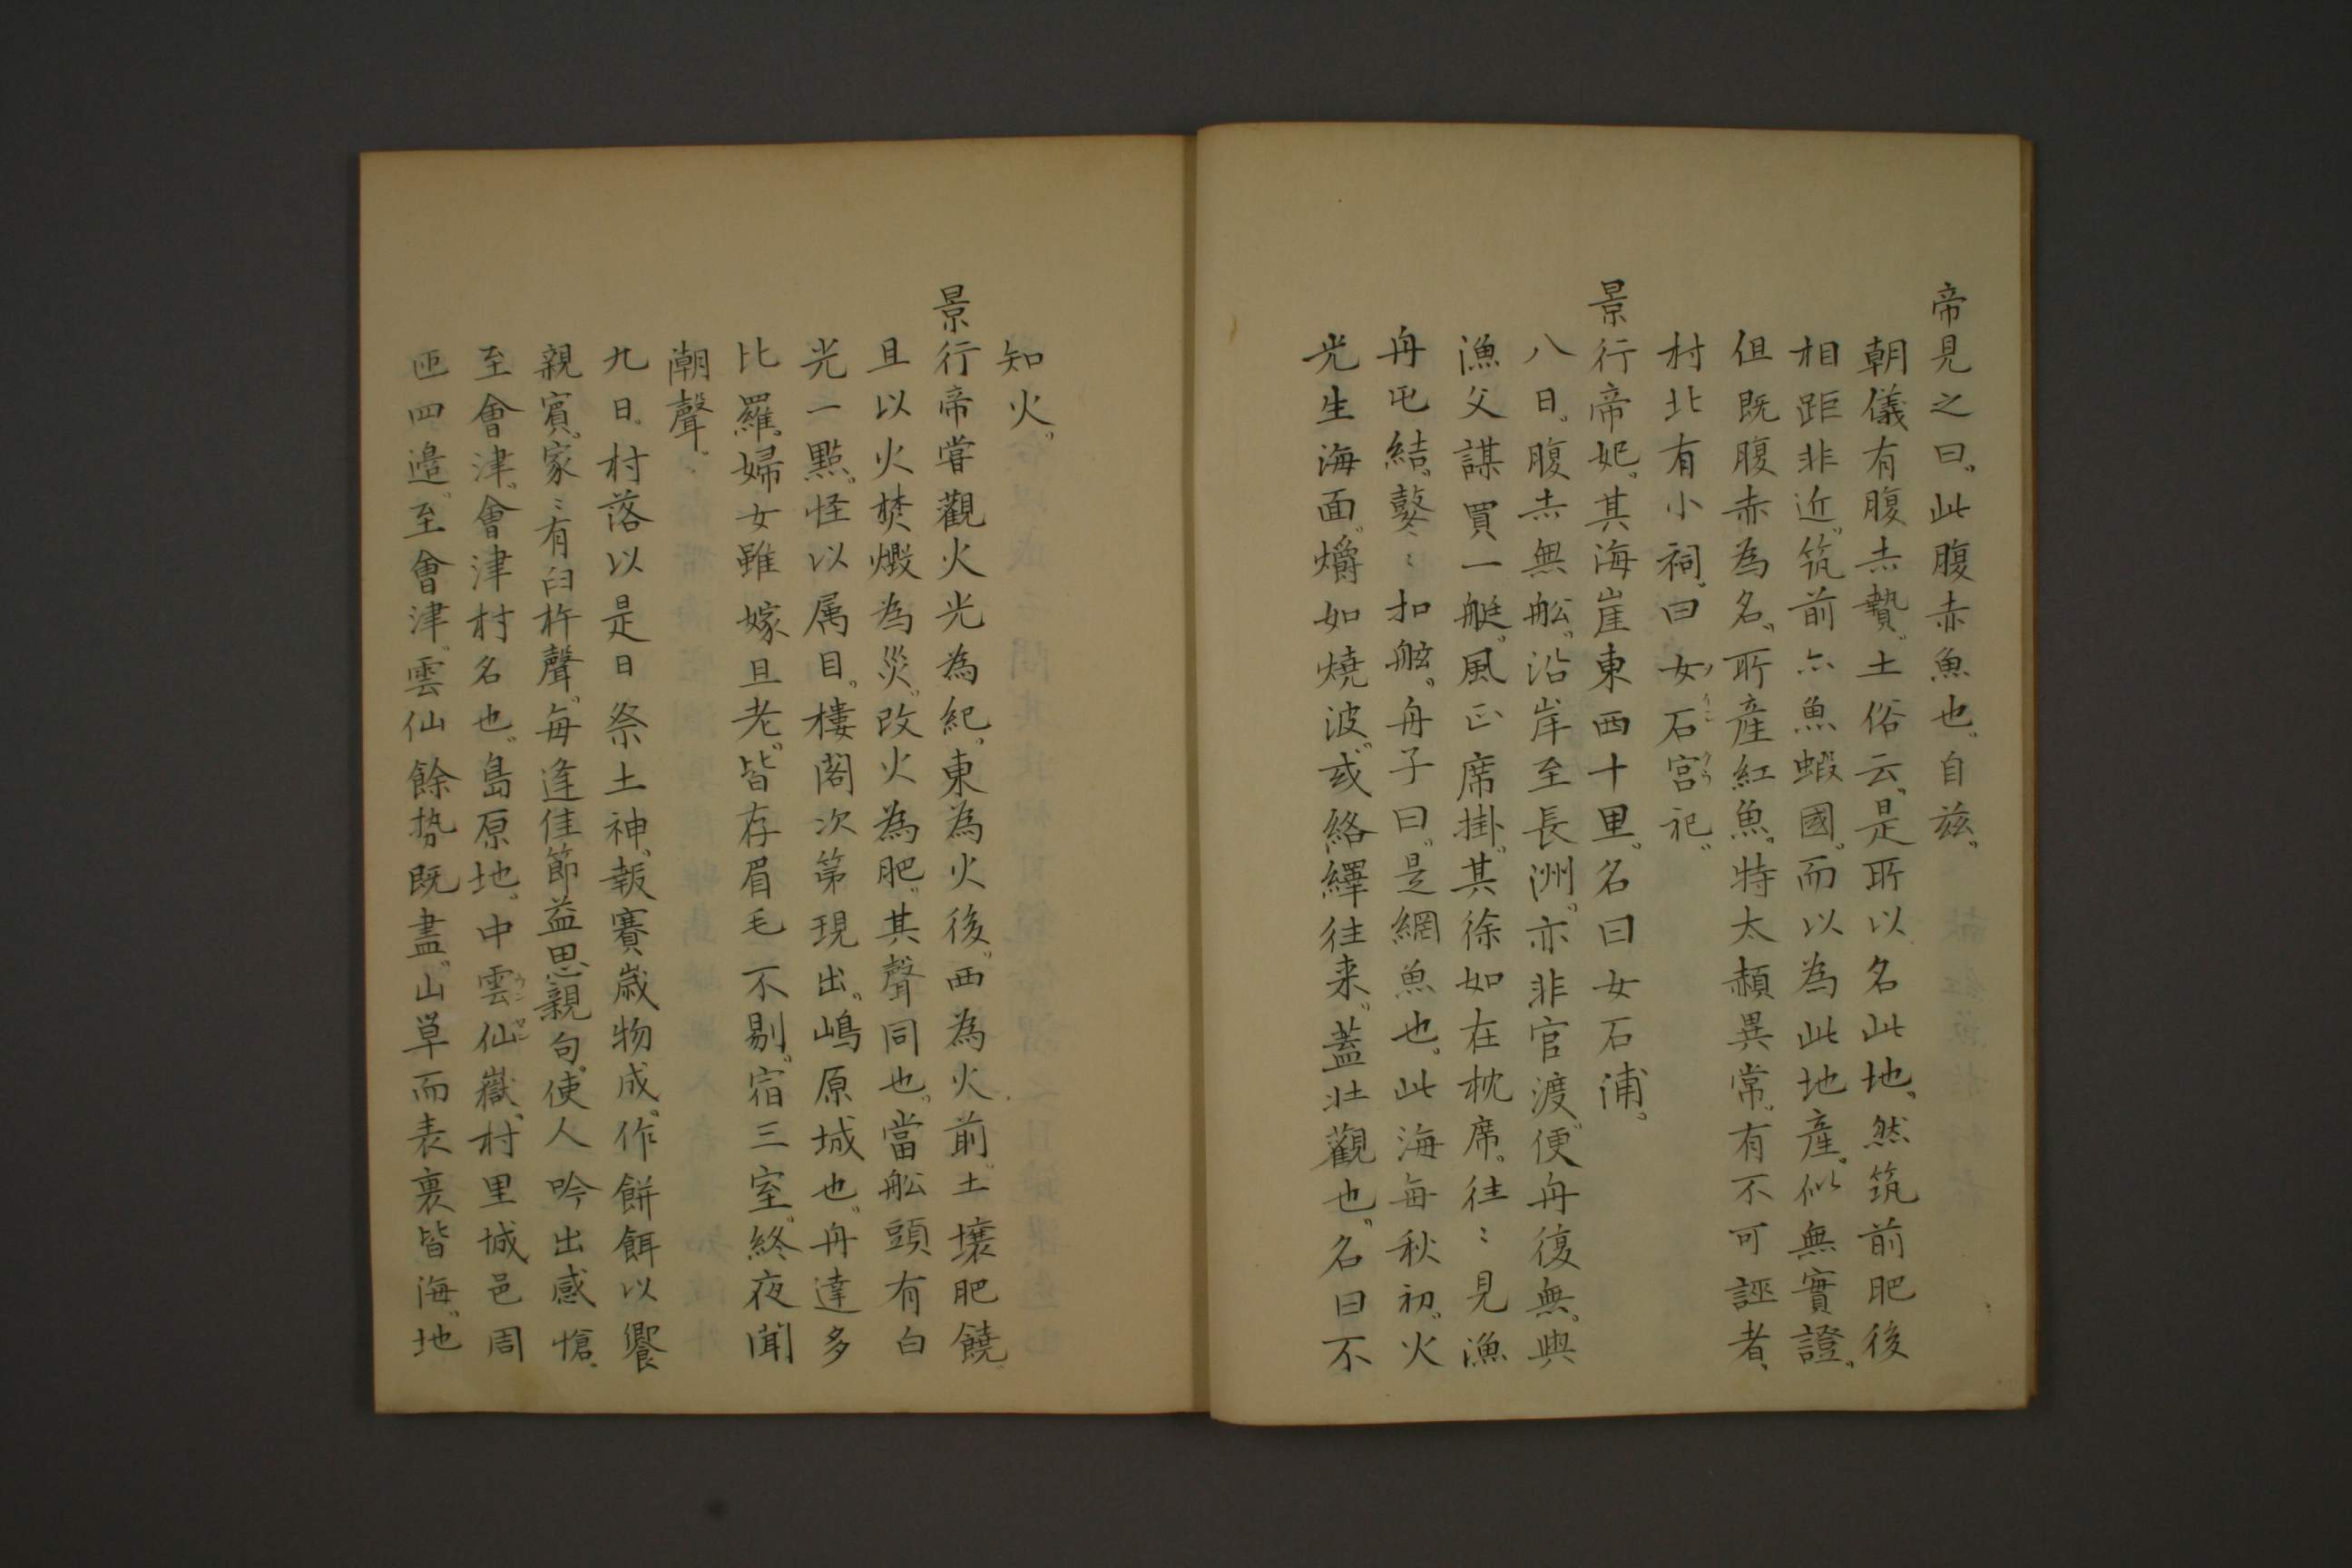 帝見之曰、此腹赤魚也、自茲、
朝儀有腹赤贄、土俗云、是所以名此地、然筑前肥後
相距非近、筑前亦魚蝦國、而以為此地産、似無實證、
但既腹赤為名、所産紅魚、特太赬異常、有不可誣者、
村北有小祠、曰女石宮祀、
景行帝妃、其海崖東西十里、名曰女石浦、
八日、腹赤無舩、沿岸至長洲、亦非官渡、便舟復無、與
漁父謀買一艇、風正席掛、其徐如在枕席、往〻見漁
舟屯結、鼕〻扣舷、舟子曰、是網魚也、此海每秋初、火
光生海面、爝如燒波、或絡繹往来、蓋壯觀也、名曰不
知火、
景行帝嘗觀火光為紀、東為火後、西為火前、土壤肥饒、
且以火焚燬為災、改火為肥、其聲同也、當舩頭有白
光一點、怪以属目、樓閣次第現出、嶋原城也、舟達多
比羅、婦女雖嫁且老、皆存眉毛不剔、宿三室、終夜聞
潮聲、
九日、村落以是日祭土神、報賽歳物成、作餅餌以饗
親賓、家〻有臼杵聲、每逢佳節益思親句、使人吟出感愴、
至會津、會津村名也、島原地、中雲仙嶽、村里城邑周
匝四邉、至會津、雲仙餘勢既盡、山草而表裏皆海、地